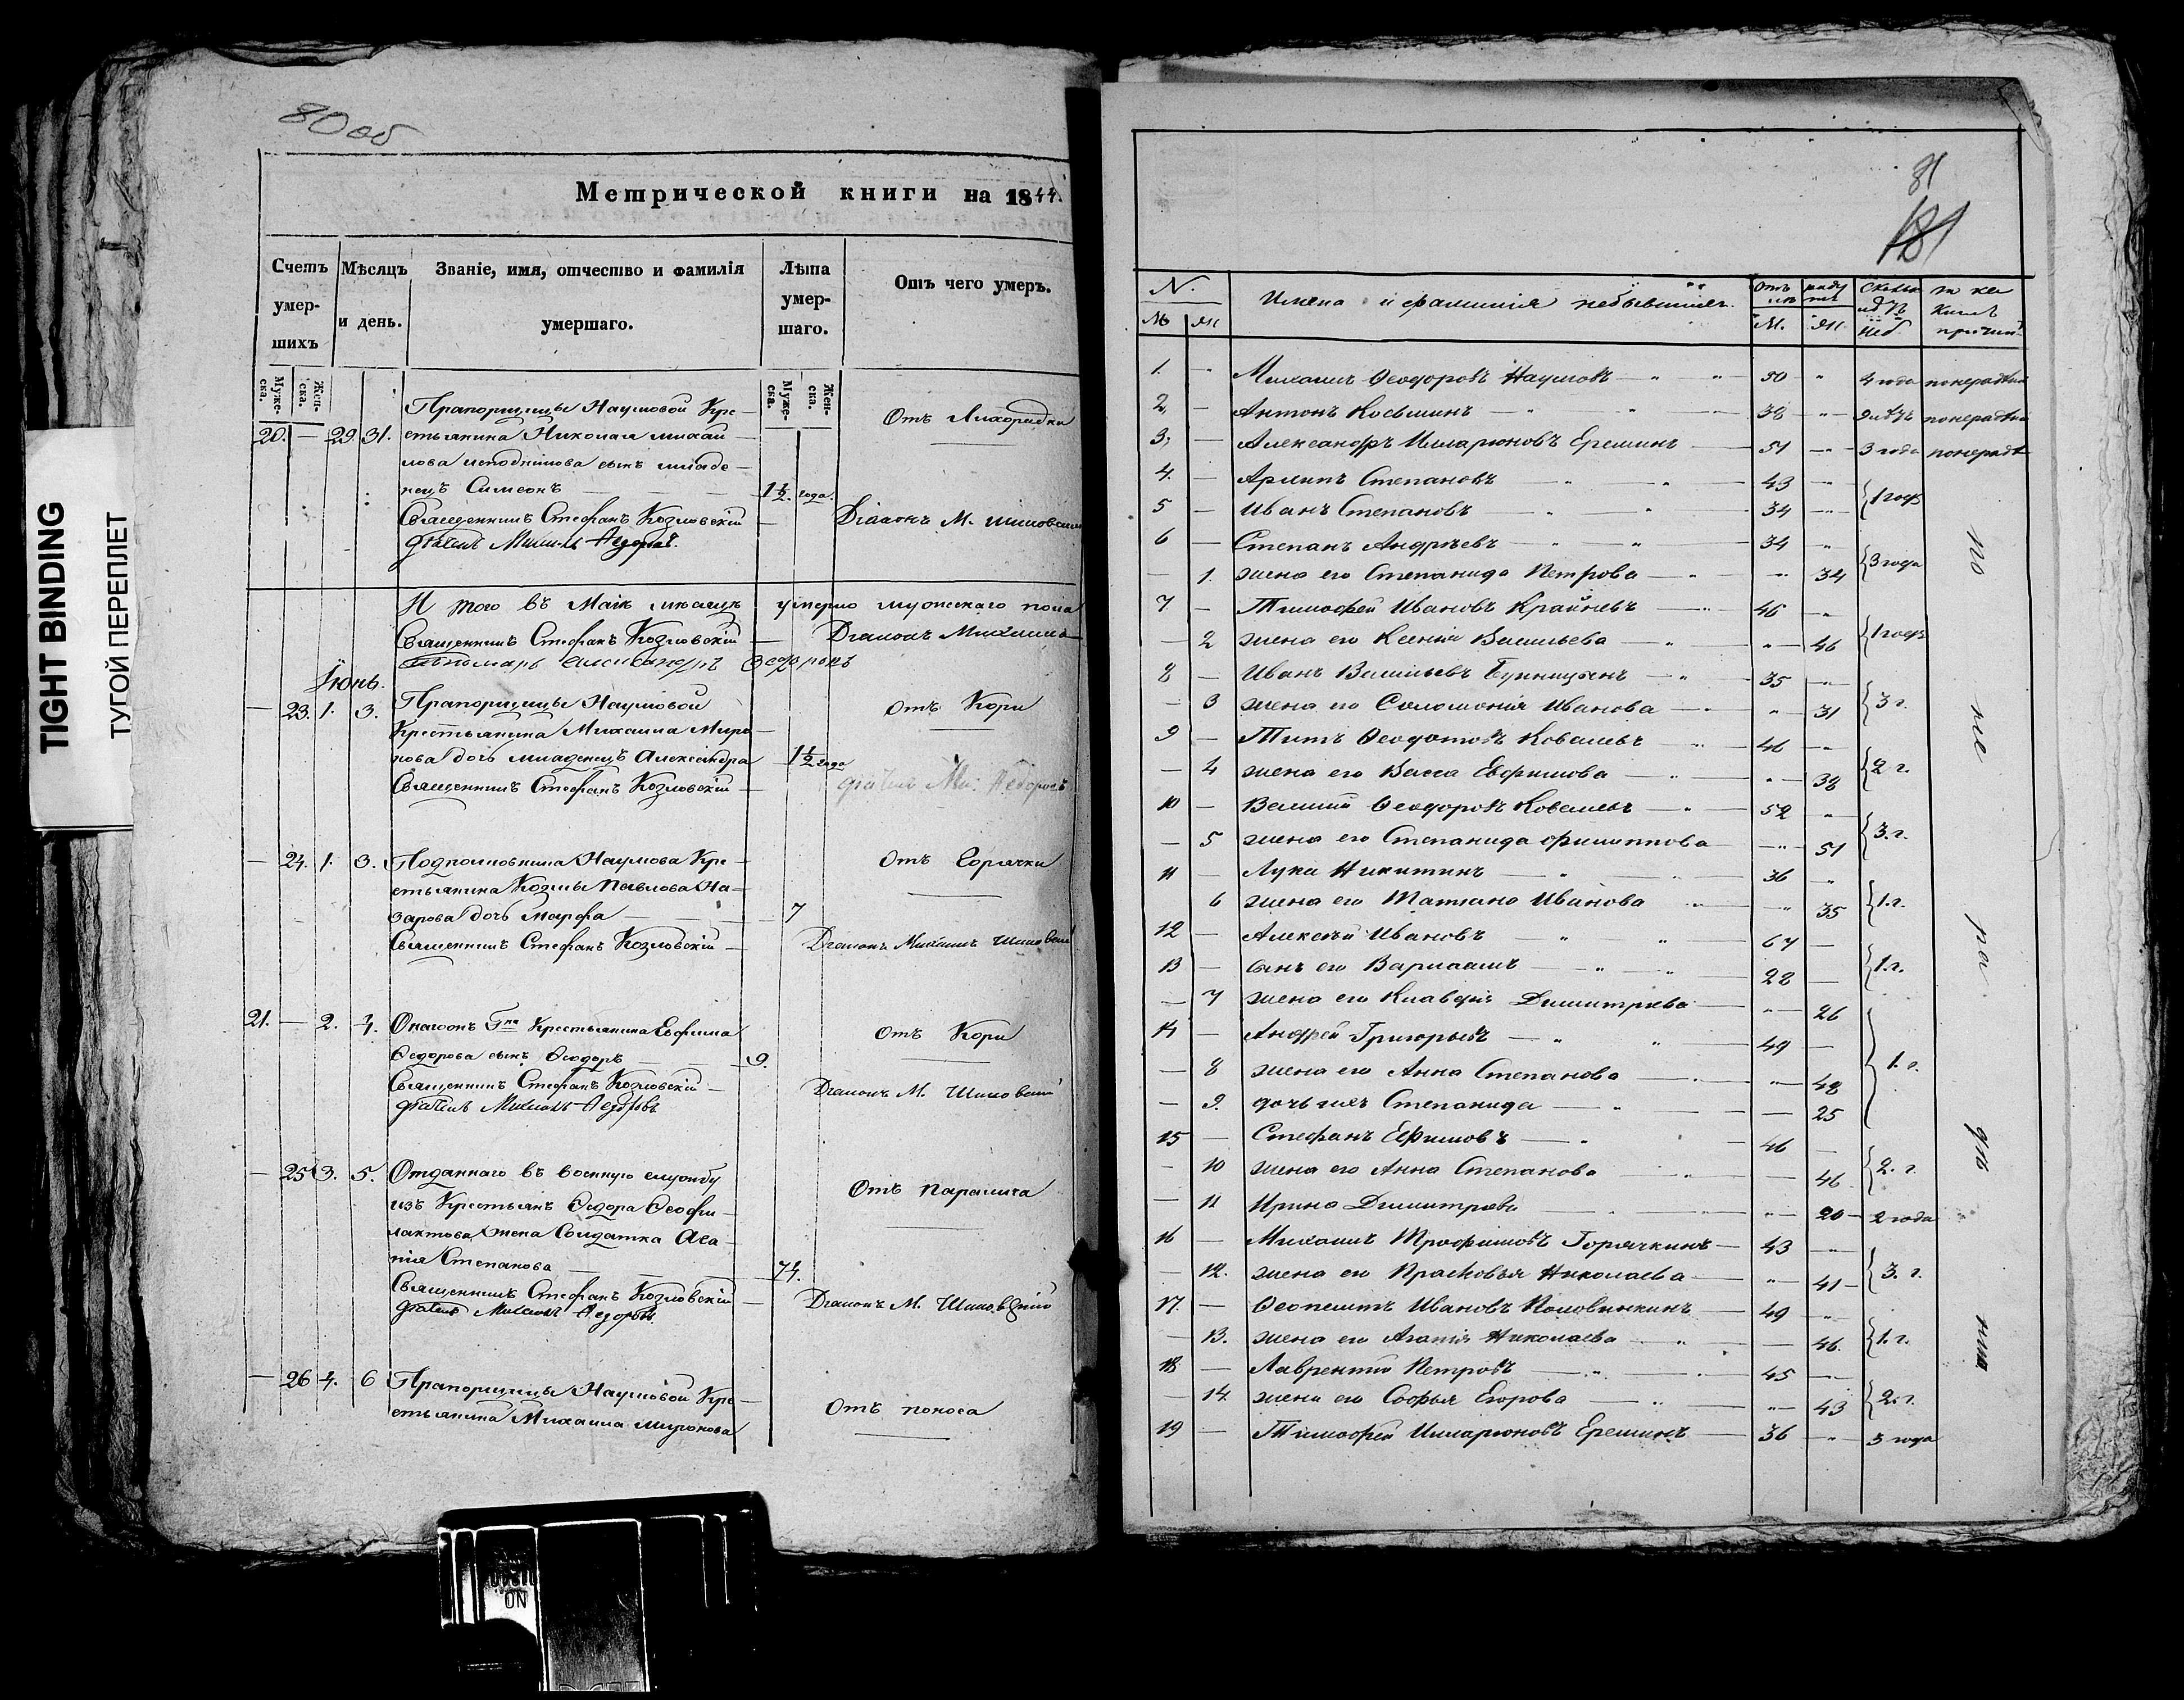 TIGHT BINDING
ТУГОЙ ПЕРЕПЛЕТ
80 об
Метрической книги на 1844.
Счетъ умер-шихъ
Мѣсяцъ и день.
Званіе, имя, отчество и фамилія умершаго.
Лѣта умер-шаго.
Отъ чего умеръ.
Муже-ска. Жен-ска. Муже-ска. Жен-ска.
Прапорщицы Наумовой Кре-
20. — 29 31. стьянина Николая Михай-
лова сынъ младе-
нецъ Симеонъ — 1½ года. Отъ Лихорадки
Священникъ Стефанъ Козловскій — Діаконъ М.
И того въ Маіѣ мѣсяцѣ умерло мужскаго пола
Священникъ Стефанъ Козловскій — Діаконъ Михаилъ
Пономарь Александръ
Іюнь.
— 23. 1. 3. Прапорщицы Наумовой Отъ Кори
Крестьянина Михаила Миро-
нова дочь младенецъ Александра — 1½ года
Священникъ Стефанъ Козловскій —
— 24. 1. 3. Подполковника Наумова Кре- Отъ Горячки
стьянина Козмы Павлова На-
зарова дочь Марфа — 7
Священникъ Стефанъ Козловскій — Діаконъ Михаилъ
21. — 2. 4. Крестьянина Евфима Отъ Кори
Ѳедорова сынъ Ѳеодоръ — 9.
Священникъ Стефанъ Козловскій — Діаконъ М.
— 25 3. 5. Отданнаго въ военную службу
изъ Крестьянъ Ѳедора Ѳеофи- Отъ Паралича
лактова жена Солдатка Ага-
пія Степанова — 74.
Священникъ Стефанъ Козловскій — Діаконъ М.
— 26 4. 6 Прапорщицы Наумовой Кре-
стьянина Михаила Миронова Отъ поноса
81
181
N. Имена и фамиліи небывшихъ
М. Ж. М. Ж.
1. Михаилъ Ѳеодоровъ Наумовъ — 50 4 года
2. — Антонъ Косьминъ — 38
3. — Александръ Иларіоновъ Еремин — 51 3 года
4. — Архипъ Степановъ 43
5 — Иванъ Степановъ — 34 1 годъ
6 — Степанъ Андреевъ — 34
— 1. жена его Степанида Петрова — 34 3 года
7 — Тимофей Ивановъ Крайневъ — 46
— 2 жена его Ксенія Васильева 46 1 годъ
8 — Иванъ Васильевъ 35
— 3 жена его Соломонія Иванова — 31 3 г.
9 — Титъ Ѳеодотовъ Ковалевъ 46
— 4 жена его Васса Евфимова — 38 2 г.
10 — Василій Ѳеодоровъ Ковалевъ — 52
— 5 жена его Степанида Филиппова — 51 3. г.
11 — Лука Никитинъ — 36
6 жена его Татіана Иванова 35 1. г.
12 — Алексѣй Ивановъ 67 —
13 — сынъ его Варлаамъ — 28 — 1. г.
— 7 жена его Клавдія Димитріева — 26
14 — Андрей Григорьевъ — 49 —
— 8 жена его Анна Степанова — 48 1. г.
— 9. дочь ихъ Степанида — 25
15 — Стефанъ Ефимовъ — 46 —
— 10 жена его Анна Степанова — 46 2. г.
— 11 Ирина Димитріева — 20 — 2 года
16 — Михаилъ Трофимовъ Горячкинъ — 43
— 12. жена его Прасковья Николаева — 41 — 3. г.
17. — Ѳеопемптъ Ивановъ Половинкинъ — 49
— 13. жена его Агапія Николаева — 46. 1. г.
18 — Лаврентій Петровъ — 45 —
— 14. жена его Софья Егорова — 43 2. г.
19 — Тимофей Иларіоновъ Ереминъ — 36 3 года
по не ра дѣ нію